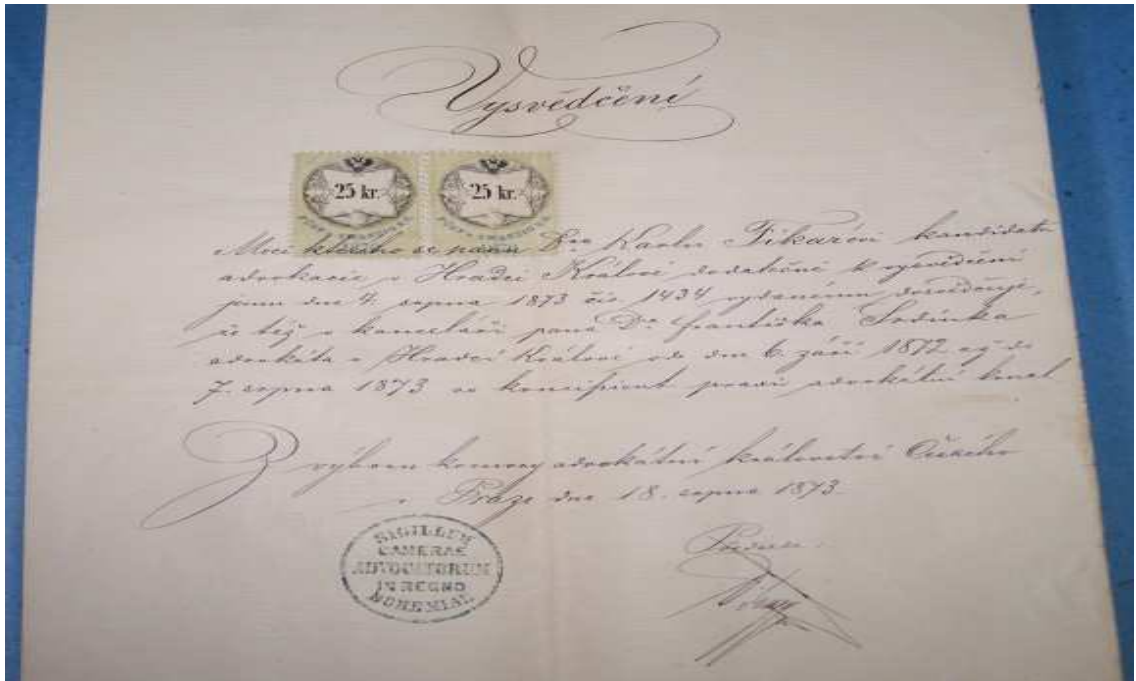 Vysvědčení
25 kr. 25 kr.
Mocí kterého se panu Dru Karlu Fikarovi kandidatu
advokacie v Hradci Králové dodatečně k vysvědčení
jemu dne 4. srpna 1873 čís. 1434 vydanému dosvědčuje,
že též v kanceláři pana Dra Františka
advokáta v Hradci Králové od dne 6. září 1872 až do
7. srpna 1873 co koncipient praxi advokátní konal
Z výboru komory advokátní království Českého
v Praze dne 18. srpna 1873.
SIGILLUM
CAMERAE
ADVOCATORUM
IN REGNO
BOHEMIAE